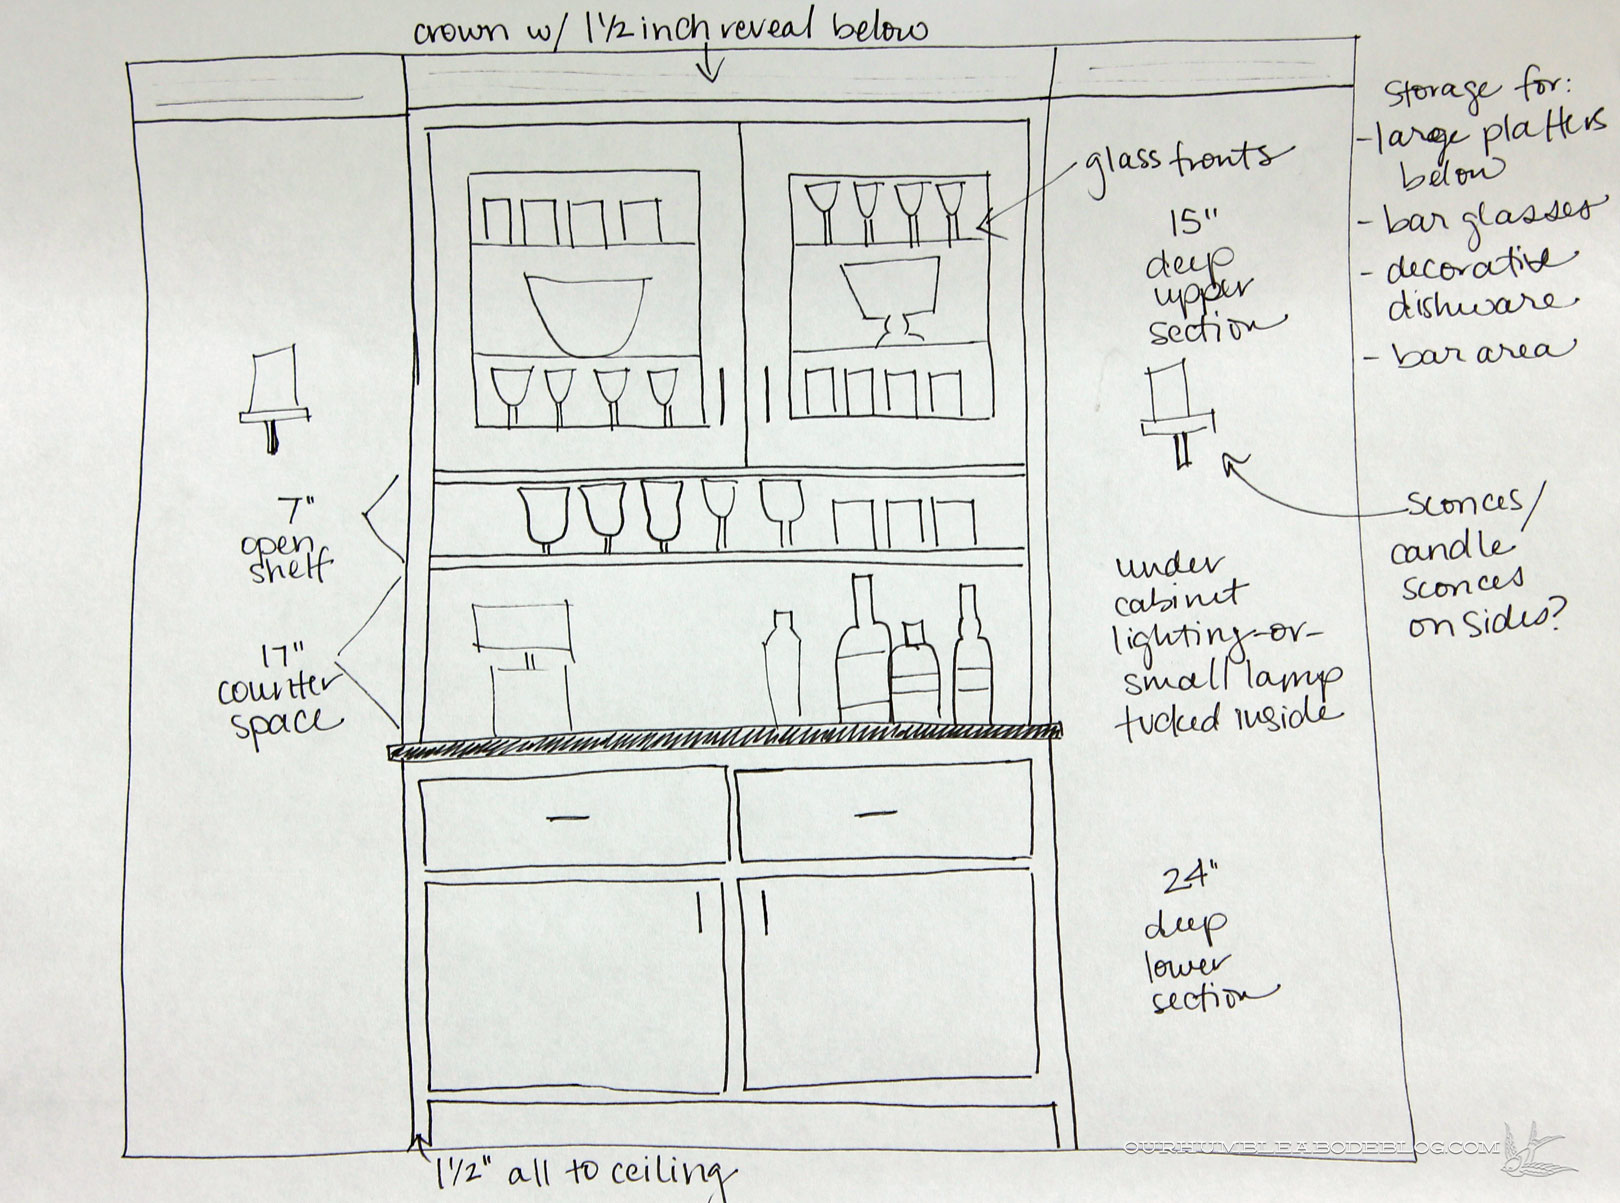 crown w/ 1½ inch reveal below
storage for:
- large platters
below
- bar glasses
- decorative
dishware
- bar area
glass fronts
15"
deep
upper
section
sconces/
candle
sconces
on sides?
7"
open
shelf
under
cabinet
lighting-or-
small lamp
tucked inside
17"
counter
space
24"
deep
lower
section
1½" all to ceiling
OURHUMBLEABODEBLOG.COM